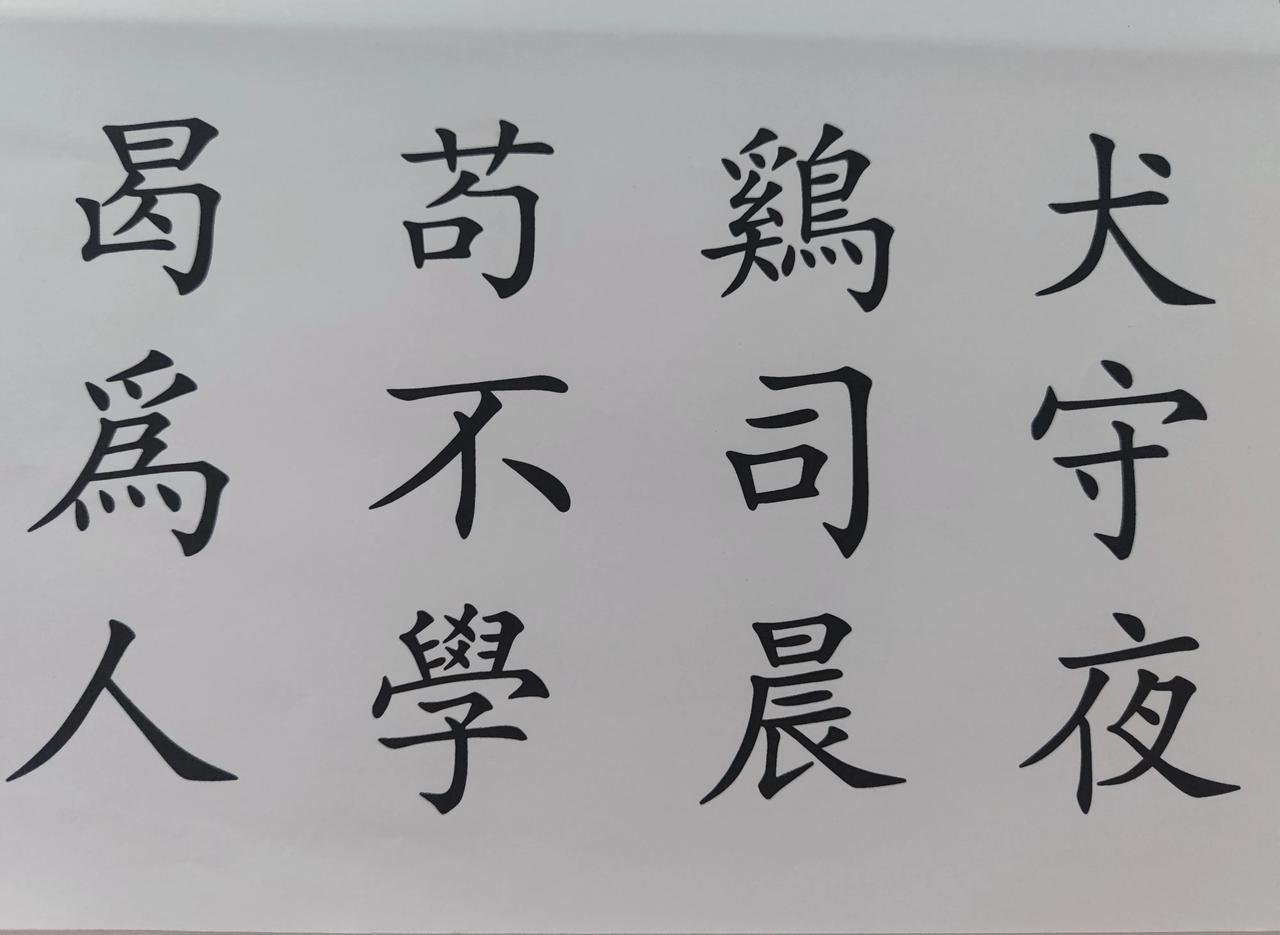 犬守夜
鷄司晨
苟不學
曷爲人